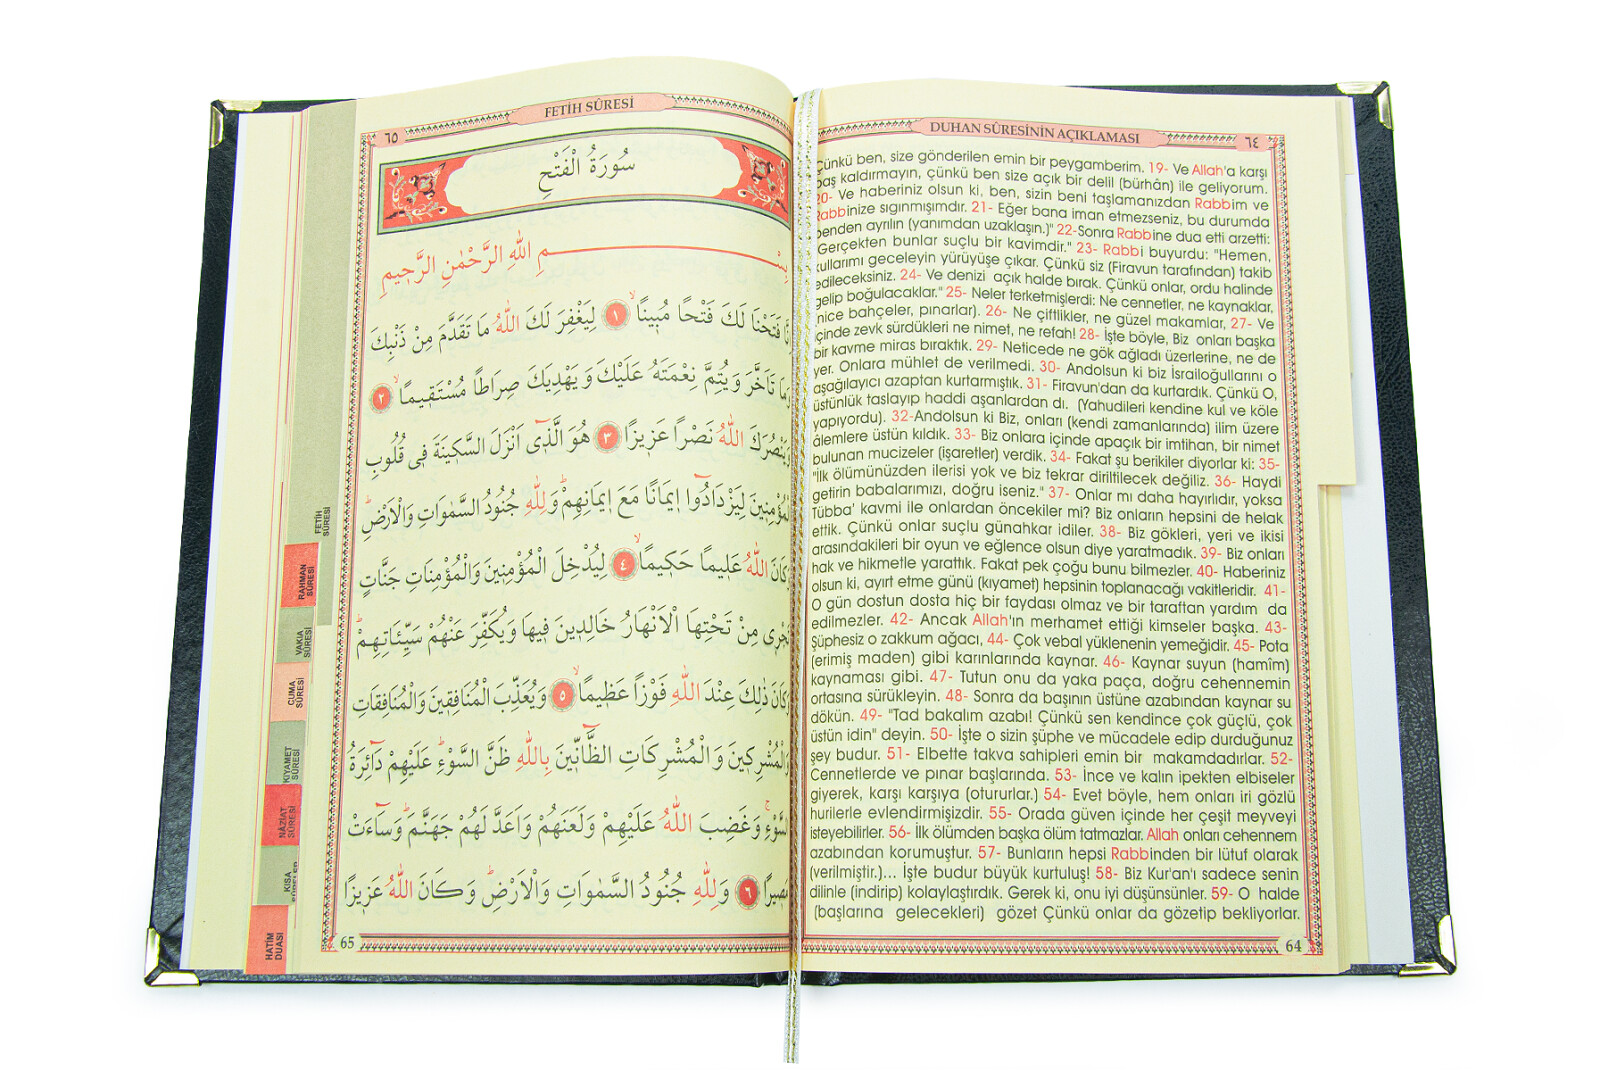 DUHAN SÛRESİNİN AÇIKLAMASI
٦٤
Çünkü ben, size gönderilen emin bir peygamberim. 19- Ve Allah'a karşı
baş kaldırmayın, çünkü ben size açık bir delil (bürhân) ile geliyorum.
20- Ve haberiniz olsun ki, ben, sizin beni taşlamanızdan Rabbim ve
Rabbinize sıgınmışımdır. 21- Eğer bana iman etmezseniz, bu durumda
benden ayrılın (yanımdan uzaklaşın.)" 22-Sonra Rabbine dua etti arzetti:
Gerçekten bunlar suçlu bir kavimdir." 23- Rabbi buyurdu: "Hemen,
kullarımı geceleyin yürüyüşe çıkar. Çünkü siz (Firavun tarafından) takib
edileceksiniz. 24- Ve denizi açık halde bırak. Çünkü onlar, ordu halinde
gelip boğulacaklar." 25- Neler terketmişlerdi: Ne cennetler, ne kaynaklar,
(nice bahçeler, pınarlar). 26- Ne çiftlikler, ne güzel makamlar, 27- Ve
içinde zevk sürdükleri ne nimet, ne refah! 28- İşte böyle, Biz onları başka
bir kavme miras bıraktık. 29- Neticede ne gök ağladı üzerlerine, ne de
yer. Onlara mühlet de verilmedi. 30- Andolsun ki biz İsrailoğullarını o
aşağılayıcı azaptan kurtarmıştık. 31- Firavun'dan da kurtardık. Çünkü O,
üstünlük taslayıp haddi aşanlardan dı. (Yahudileri kendine kul ve köle
yapıyordu). 32-Andolsun ki Biz, onları (kendi zamanlarında) ilim üzere
âlemlere üstün kıldık. 33- Biz onlara içinde apaçık bir imtihan, bir nimet
bulunan mucizeler (işaretler) verdik. 34- Fakat şu berikiler diyorlar ki: 35-
"İlk ölümünüzden ilerisi yok ve biz tekrar diriltilecek değiliz. 36- Haydi
getirin babalarımızı, doğru iseniz." 37- Onlar mı daha hayırlıdır, yoksa
Tübba' kavmi ile onlardan öncekiler mi? Biz onların hepsini de helak
ettik. Çünkü onlar suçlu günahkar idiler. 38- Biz gökleri, yeri ve ikisi
arasındakileri bir oyun ve eğlence olsun diye yaratmadık. 39- Biz onları
hak ve hikmetle yarattık. Fakat pek çoğu bunu bilmezler. 40- Haberiniz
olsun ki, ayırt etme günü (kıyamet) hepsinin toplanacağı vakitleridir. 41-
O gün dostun dosta hiç bir faydası olmaz ve bir taraftan yardım da
edilmezler. 42- Ancak Allah'ın merhamet ettiği kimseler başka. 43-
Şüphesiz o zakkum ağacı, 44- Çok vebal yüklenenin yemeğidir. 45- Pota
(erimiş maden) gibi karınlarında kaynar. 46- Kaynar suyun (hamîm)
kaynaması gibi. 47- Tutun onu da yaka paça, doğru cehennemin
ortasına sürükleyin. 48- Sonra da başının üstüne azabından kaynar su
dökün. 49- "Tad bakalım azabı! Çünkü sen kendince çok güçlü, çok
üstün idin" deyin. 50- İşte o sizin şüphe ve mücadele edip durduğunuz
şey budur. 51- Elbette takva sahipleri emin bir makamdadırlar. 52-
Cennetlerde ve pınar başlarında. 53- İnce ve kalın ipekten elbiseler
giyerek, karşı karşıya (otururlar.) 54- Evet böyle, hem onları iri gözlü
hurilerle evlendirmişizdir. 55- Orada güven içinde her çeşit meyveyi
isteyebilirler. 56- İlk ölümden başka ölüm tatmazlar. Allah onları cehennem
azabından korumuştur. 57- Bunların hepsi Rabbinden bir lütuf olarak
(verilmiştir.)... İşte budur büyük kurtuluş! 58- Biz Kur'an'ı sadece senin
dilinle (indirip) kolaylaştırdık. Gerek ki, onu iyi düşünsünler. 59- O halde
(başlarına gelecekleri) gözet Çünkü onlar da gözetip bekliyorlar.
64
٦٥
FETİH SÛRESİ
سُورَةُ الْفَتْحِ
بِسْمِ اللّٰهِ الرَّحْمٰنِ الرَّحٖيمِ
فَتَحْنَا لَكَ فَتْحًا مُبٖينًا ١ لِيَغْفِرَ لَكَ اللّٰهُ مَا تَقَدَّمَ مِنْ ذَنْبِكَ
وَمَا تَاَخَّرَ وَيُتِمَّ نِعْمَتَهُ عَلَيْكَ وَيَهْدِيَكَ صِرَاطًا مُسْتَقٖيمًا ٢
وَيَنْصُرَكَ اللّٰهُ نَصْرًا عَزٖيزًا ٣ هُوَ الَّذٖٓى اَنْزَلَ السَّكٖينَةَ فٖى قُلُوبِ
الْمُؤْمِنٖينَ لِيَزْدَادُٓوا اٖيمَانًا مَعَ اٖيمَانِهِمْ وَلِلّٰهِ جُنُودُ السَّمٰوَاتِ وَالْاَرْضِ
وَكَانَ اللّٰهُ عَلٖيمًا حَكٖيمًا ٤ لِيُدْخِلَ الْمُؤْمِنٖينَ وَالْمُؤْمِنَاتِ جَنَّاتٍ
تَجْرٖى مِنْ تَحْتِهَا الْاَنْهَارُ خَالِدٖينَ فٖيهَا وَيُكَفِّرَ عَنْهُمْ سَيِّئَاتِهِمْ
وَكَانَ ذٰلِكَ عِنْدَ اللّٰهِ فَوْزًا عَظٖيمًا ٥ وَيُعَذِّبَ الْمُنَافِقٖينَ وَالْمُنَافِقَاتِ
وَالْمُشْرِكٖينَ وَالْمُشْرِكَاتِ الظَّٓانّٖينَ بِاللّٰهِ ظَنَّ السَّوْءِ عَلَيْهِمْ دَٓائِرَةُ
السَّوْءِ وَغَضِبَ اللّٰهُ عَلَيْهِمْ وَلَعَنَهُمْ وَاَعَدَّ لَهُمْ جَهَنَّمَ وَسَٓاءَتْ
مَصٖيرًا ٦ وَلِلّٰهِ جُنُودُ السَّمٰوَاتِ وَالْاَرْضِ وَكَانَ اللّٰهُ عَزٖيزًا
65
FETİH
SÛRESİ
RAHMAN
SÛRESİ
VAKIA
SÛRESİ
CUMA
SÛRESİ
KIYAMET
SÛRESİ
NAZİAT
SÛRESİ
KISA
HATİM
DUASI